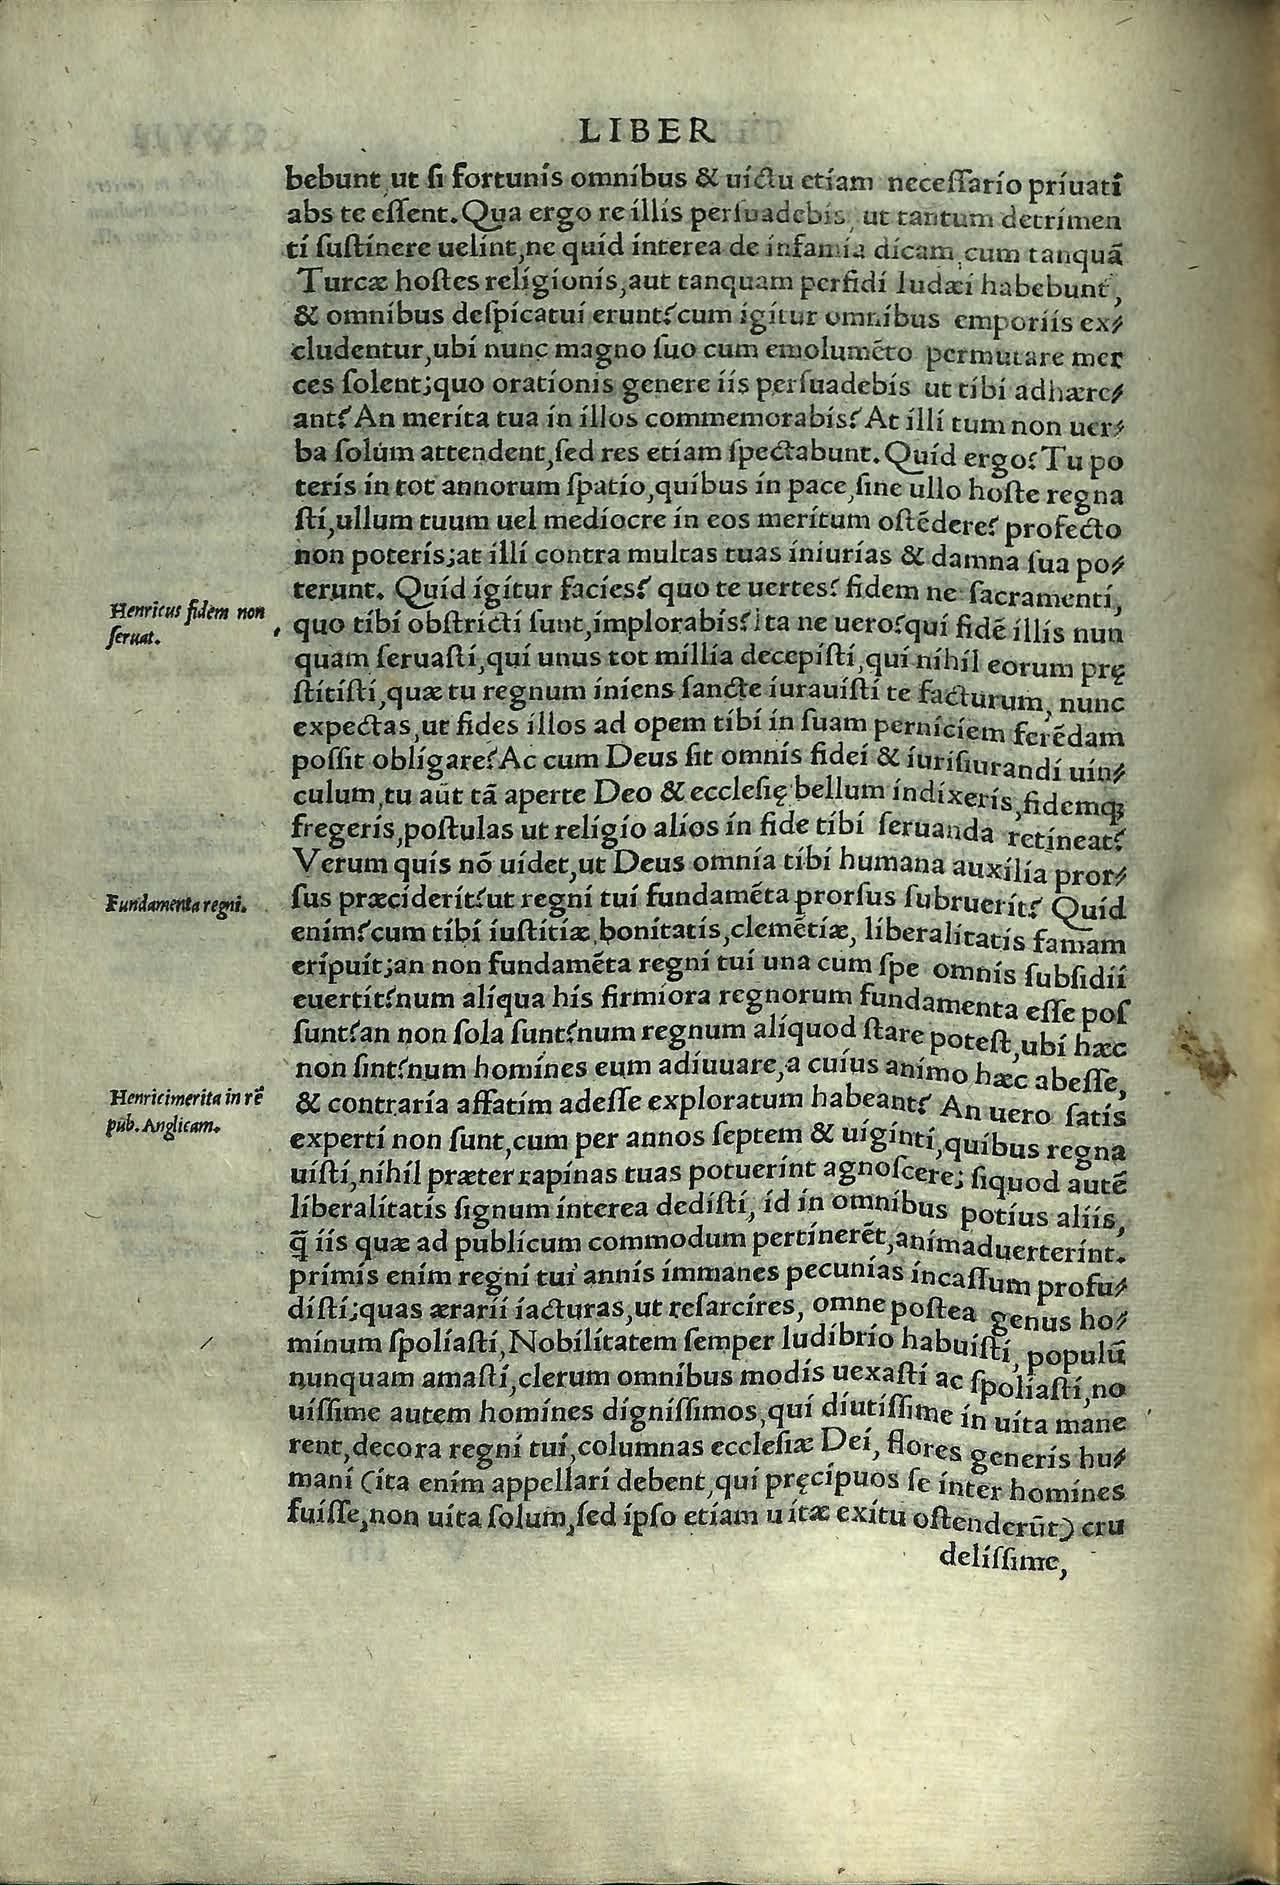 LIBER
bebunt, ut ſi fortunis omnibus & uictu etiam neceſſario priuati
abs te eſſent. Qua ergo re illis perſuadebis, ut tantum detrimen
ti ſuſtinere uelint, ne quid interea de infamia dicam, cum tanquā
Turcæ hoſtes religionis, aut tanquam perfidi Iudæi habebunt,
& omnibus deſpicatui erunt? cum igitur omnibus emporiis ex⸗
cludentur, ubi nunc magno ſuo cum emolumēto permutare mer
ces ſolent; quo orationis genere iis perſuadebis ut tibi adhære⸗
ant? An merita tua in illos commemorabis? At illi tum non uer⸗
ba ſolùm attendent, ſed res etiam ſpectabunt. Quid ergo? Tu po
teris in tot annorum ſpatio, quibus in pace, ſine ullo hoſte regna
ſti, ullum tuum uel mediocre in eos meritum oſtēdere? profecto
non poteris; at illi contra multas tuas iniurias & damna ſua po⸗
terunt. Quid igitur facies? quo te uertes? fidem ne ſacramenti,
Henricus fidem non
ſeruat.
quo tibi obſtricti ſunt, implorabis? ita ne uero? qui fidē illis nun
quam ſeruaſti, qui unus tot millia decepiſti, qui nihil eorum prę
ſtitiſti, quæ tu regnum iniens ſancte iurauiſti te facturum, nunc
expectas, ut fides illos ad opem tibi in ſuam perniciem ferēdam
poſſit obligare? Ac cum Deus ſit omnis fidei & iurisiurandi uin⸗
culum, tu aūt tā aperte Deo & eccleſię bellum indixeris, fidemq́ꝫ
fregeris, poſtulas ut religio alios in fide tibi ſeruanda retineat?
Verum quis nō uidet, ut Deus omnia tibi humana auxilia pror⸗
Fundamenta regni.
ſus præciderit? ut regni tui fundamēta prorſus ſubruerit? Quid
enim? cum tibi iuſtitiæ, bonitatis, clemētiæ, liberalitatis famam
eripuit; an non fundamēta regni tui una cum ſpe omnis ſubſidii
euertit? num aliqua his firmiora regnorum fundamenta eſſe poſ
ſunt? an non ſola ſunt? num regnum aliquod ſtare poteſt, ubi hæc
non ſint? num homines eum adiuuare, a cuius animo hæc abeſſe,
Henrici merita in rē
pub. Anglicam.
& contraria affatim adeſſe exploratum habeant? An uero ſatis
experti non ſunt, cum per annos ſeptem & uiginti, quibus regna
uiſti, nihil præter rapinas tuas potuerint agnoſcere; ſiquod autē
liberalitatis ſignum interea dediſti, id in omnibus potius aliis,
q̄ iis quæ ad publicum commodum pertinerēt, animaduerterint.
primis enim regni tui annis immanes pecunias incaſſum profu⸗
diſti; quas ærarii iacturas, ut reſarcires, omne poſtea genus ho⸗
minum ſpoliaſti, Nobilitatem ſemper ludibrio habuiſti, populū
nunquam amaſti, clerum omnibus modis uexaſti ac ſpoliaſti, no
uiſſime autem homines digniſſimos, qui diutiſſime in uita mane
rent, decora regni tui, columnas eccleſiæ Dei, flores generis hu⸗
mani (ita enim appellari debent, qui pręcipuos ſe inter homines
fuiſſe, non uita ſolum, ſed ipſo etiam uitæ exitu oſtenderūt) cru
deliſſime,